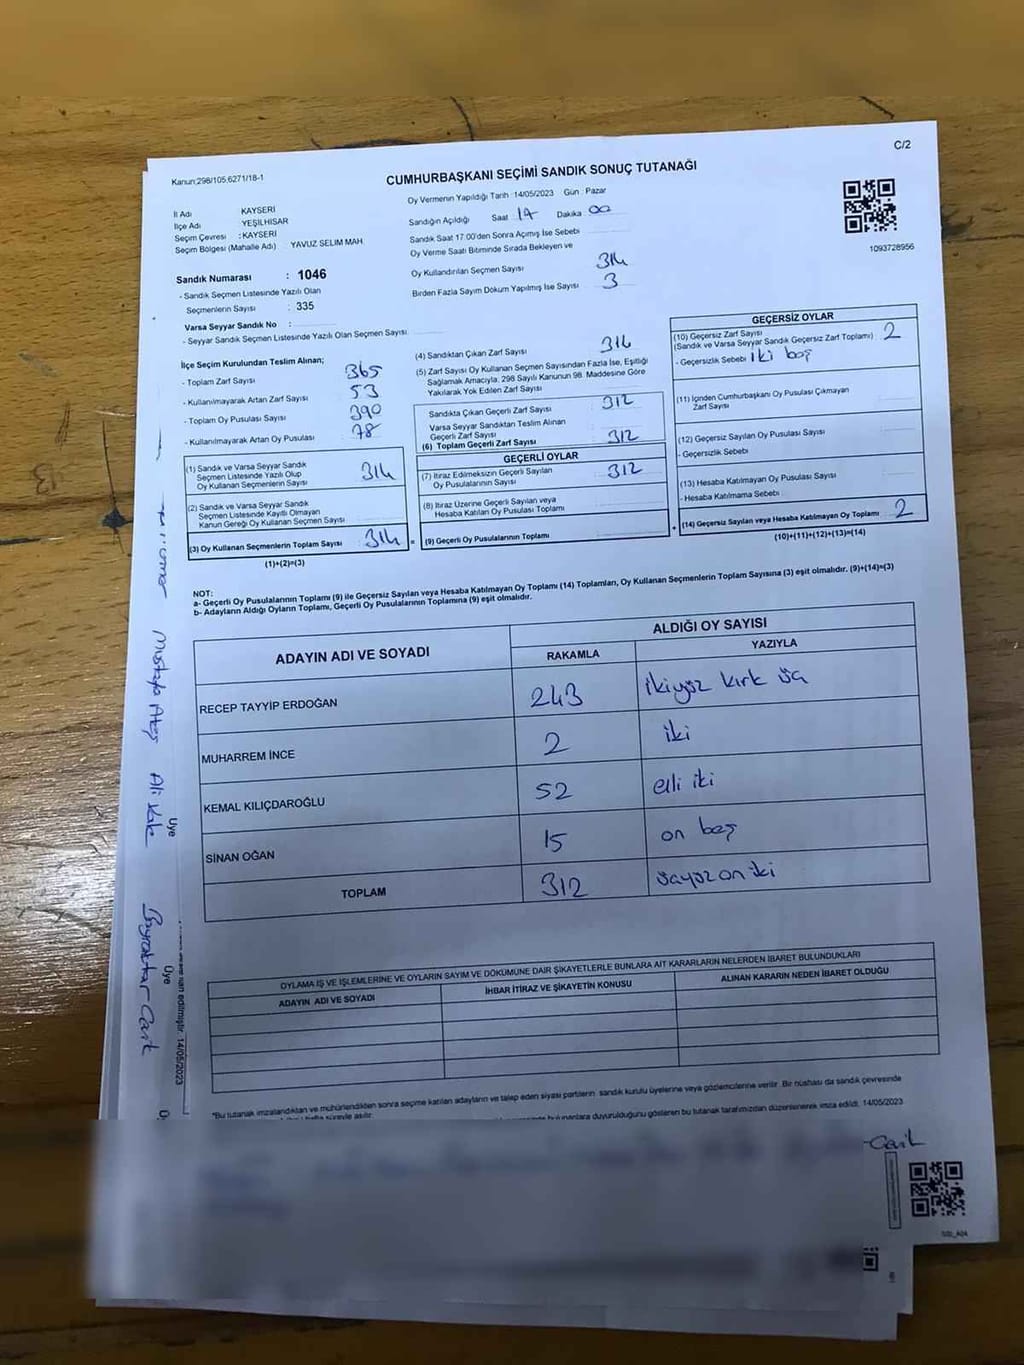 C/2
Kanun;298/105,6271/18-1
CUMHURBAŞKANI SEÇİMİ SANDIK SONUÇ TUTANAĞI
İl Adı KAYSERİ
İlçe Adı YEŞİLHİSAR
Seçim Çevresi : KAYSERİ
Seçim Bölgesi (Mahalle Adı) YAVUZ SELIM MAH.
Oy Vermenin Yapıldığı Tarih :14/05/2023 Gün : Pazar
Sandığın Açıldığı Saat 17 Dakika 00
Sandık Saat 17:00'den Sonra Açımış İse Sebebi
Oy Verme Saati Bitiminde Sırada Bekleyen ve
Oy Kullandırılan Seçmen Sayısı 314
Birden Fazla Sayım Döküm Yapılmış İse Sayısı 3
1093728956
Sandık Numarası : 1046
- Sandık Seçmen Listesinde Yazılı Olan
Seçmenlerin Sayısı : 335
Varsa Seyyar Sandık No :
- Seyyar Sandık Seçmen Listesinde Yazılı Olan Seçmen Sayısı
İlçe Seçim Kurulundan Teslim Alınan;
- Toplam Zarf Sayısı 365
- Kullanılmayarak Artan Zarf Sayısı 53
- Toplam Oy Pusulası Sayısı 390
- Kullanılmayarak Artan Oy Pusulası 78
(1) Sandık ve Varsa Seyyar Sandık
Seçmen Listesinde Yazılı Olup
Oy Kullanan Seçmenlerin Sayısı 314
(2) Sandık ve Varsa Seyyar Sandık
Seçmen Listesinde Kayıtlı Olmayan
Kanun Gereği Oy Kullanan Seçmen Sayısı
(3) Oy Kullanan Seçmenlerin Toplam Sayısı 314 =
(1)+(2)=(3)
(4) Sandıktan Çıkan Zarf Sayısı 314
(5) Zarf Sayısı Oy Kullanan Seçmen Sayısından Fazla İse, Eşitliği
Sağlamak Amacıyla, 298 Sayılı Kanunun 98. Maddesine Göre
Yakılarak Yok Edilen Zarf Sayısı
Sandıkta Çıkan Geçerli Zarf Sayısı 312
Varsa Seyyar Sandıktan Teslim Alınan
Geçerli Zarf Sayısı
(6) Toplam Geçerli Zarf Sayısı 312
GEÇERLİ OYLAR
(7) İtiraz Edilmeksizin Geçerli Sayılan
Oy Pusulalarının Sayısı 312
(8) İtiraz Üzerine Geçerli Sayılan veya
Hesaba Katılan Oy Pusulası Toplamı
(9) Geçerli Oy Pusulalarının Toplamı +
GEÇERSİZ OYLAR
(10) Geçersiz Zarf Sayısı
(Sandık ve Varsa Seyyar Sandık Geçersiz Zarf Toplamı) 2
- Geçersizlik Sebebi iki boş
(11) İçinden Cumhurbaşkanı Oy Pusulası Çıkmayan
Zarf Sayısı
(12) Geçersiz Sayılan Oy Pusulası Sayısı
- Geçersizlik Sebebi
(13) Hesaba Katılmayan Oy Pusulası Sayısı
- Hesaba Katılmama Sebebi
(14) Geçersiz Sayılan veya Hesaba Katılmayan Oy Toplamı 2
(10)+(11)+(12)+(13)=(14)
NOT:
a- Geçerli Oy Pusulalarının Toplamı (9) ile Geçersiz Sayılan veya Hesaba Katılmayan Oy Toplamı (14) Toplamları, Oy Kullanan Seçmenlerin Toplam Sayısına (3) eşit olmalıdır. (9)+(14)=(3)
b- Adayların Aldığı Oyların Toplamı, Geçerli Oy Pusulalarının Toplamına (9) eşit olmalıdır.
ADAYIN ADI VE SOYADI
ALDIĞI OY SAYISI
RAKAMLA YAZIYLA
RECEP TAYYIP ERDOĞAN 243 ikiyüz kırk üç
MUHARREM İNCE 2 iki
KEMAL KILIÇDAROĞLU 52 elli iki
SİNAN OĞAN 15 on beş
TOPLAM 312 üçyüz on iki
OYLAMA İŞ VE İŞLEMLERİNE VE OYLARIN SAYIM VE DÖKÜMÜNE DAİR ŞİKAYETLERLE BUNLARA AİT KARARLARIN NELERDEN İBARET BULUNDUKLARI
ADAYIN ADI VE SOYADI İHBAR İTİRAZ VE ŞİKAYETİN KONUSU ALINAN KARARIN NEDEN İBARET OLDUĞU
*Bu tutanak imzalandıktan ve mühürlendikten sonra seçime katılan adayların ve talep eden siyasi partilerin sandık kurulu üyelerine veya gözlemcilerine verilir. Bir nüshası da sandık çevresinde
bulunanlara duyurulduğunu gösteren bu tutanak tarafımızdan düzenlenerek imza edildi. 14/05/2023
Mustafa Ateş Ali Kale Bayraktar Carik
Üye
Üye
edilmiştir. 14/05/2023
Carik